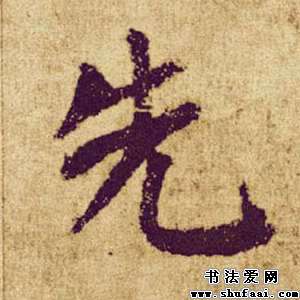 先
书法爱网
www.shufaai.com